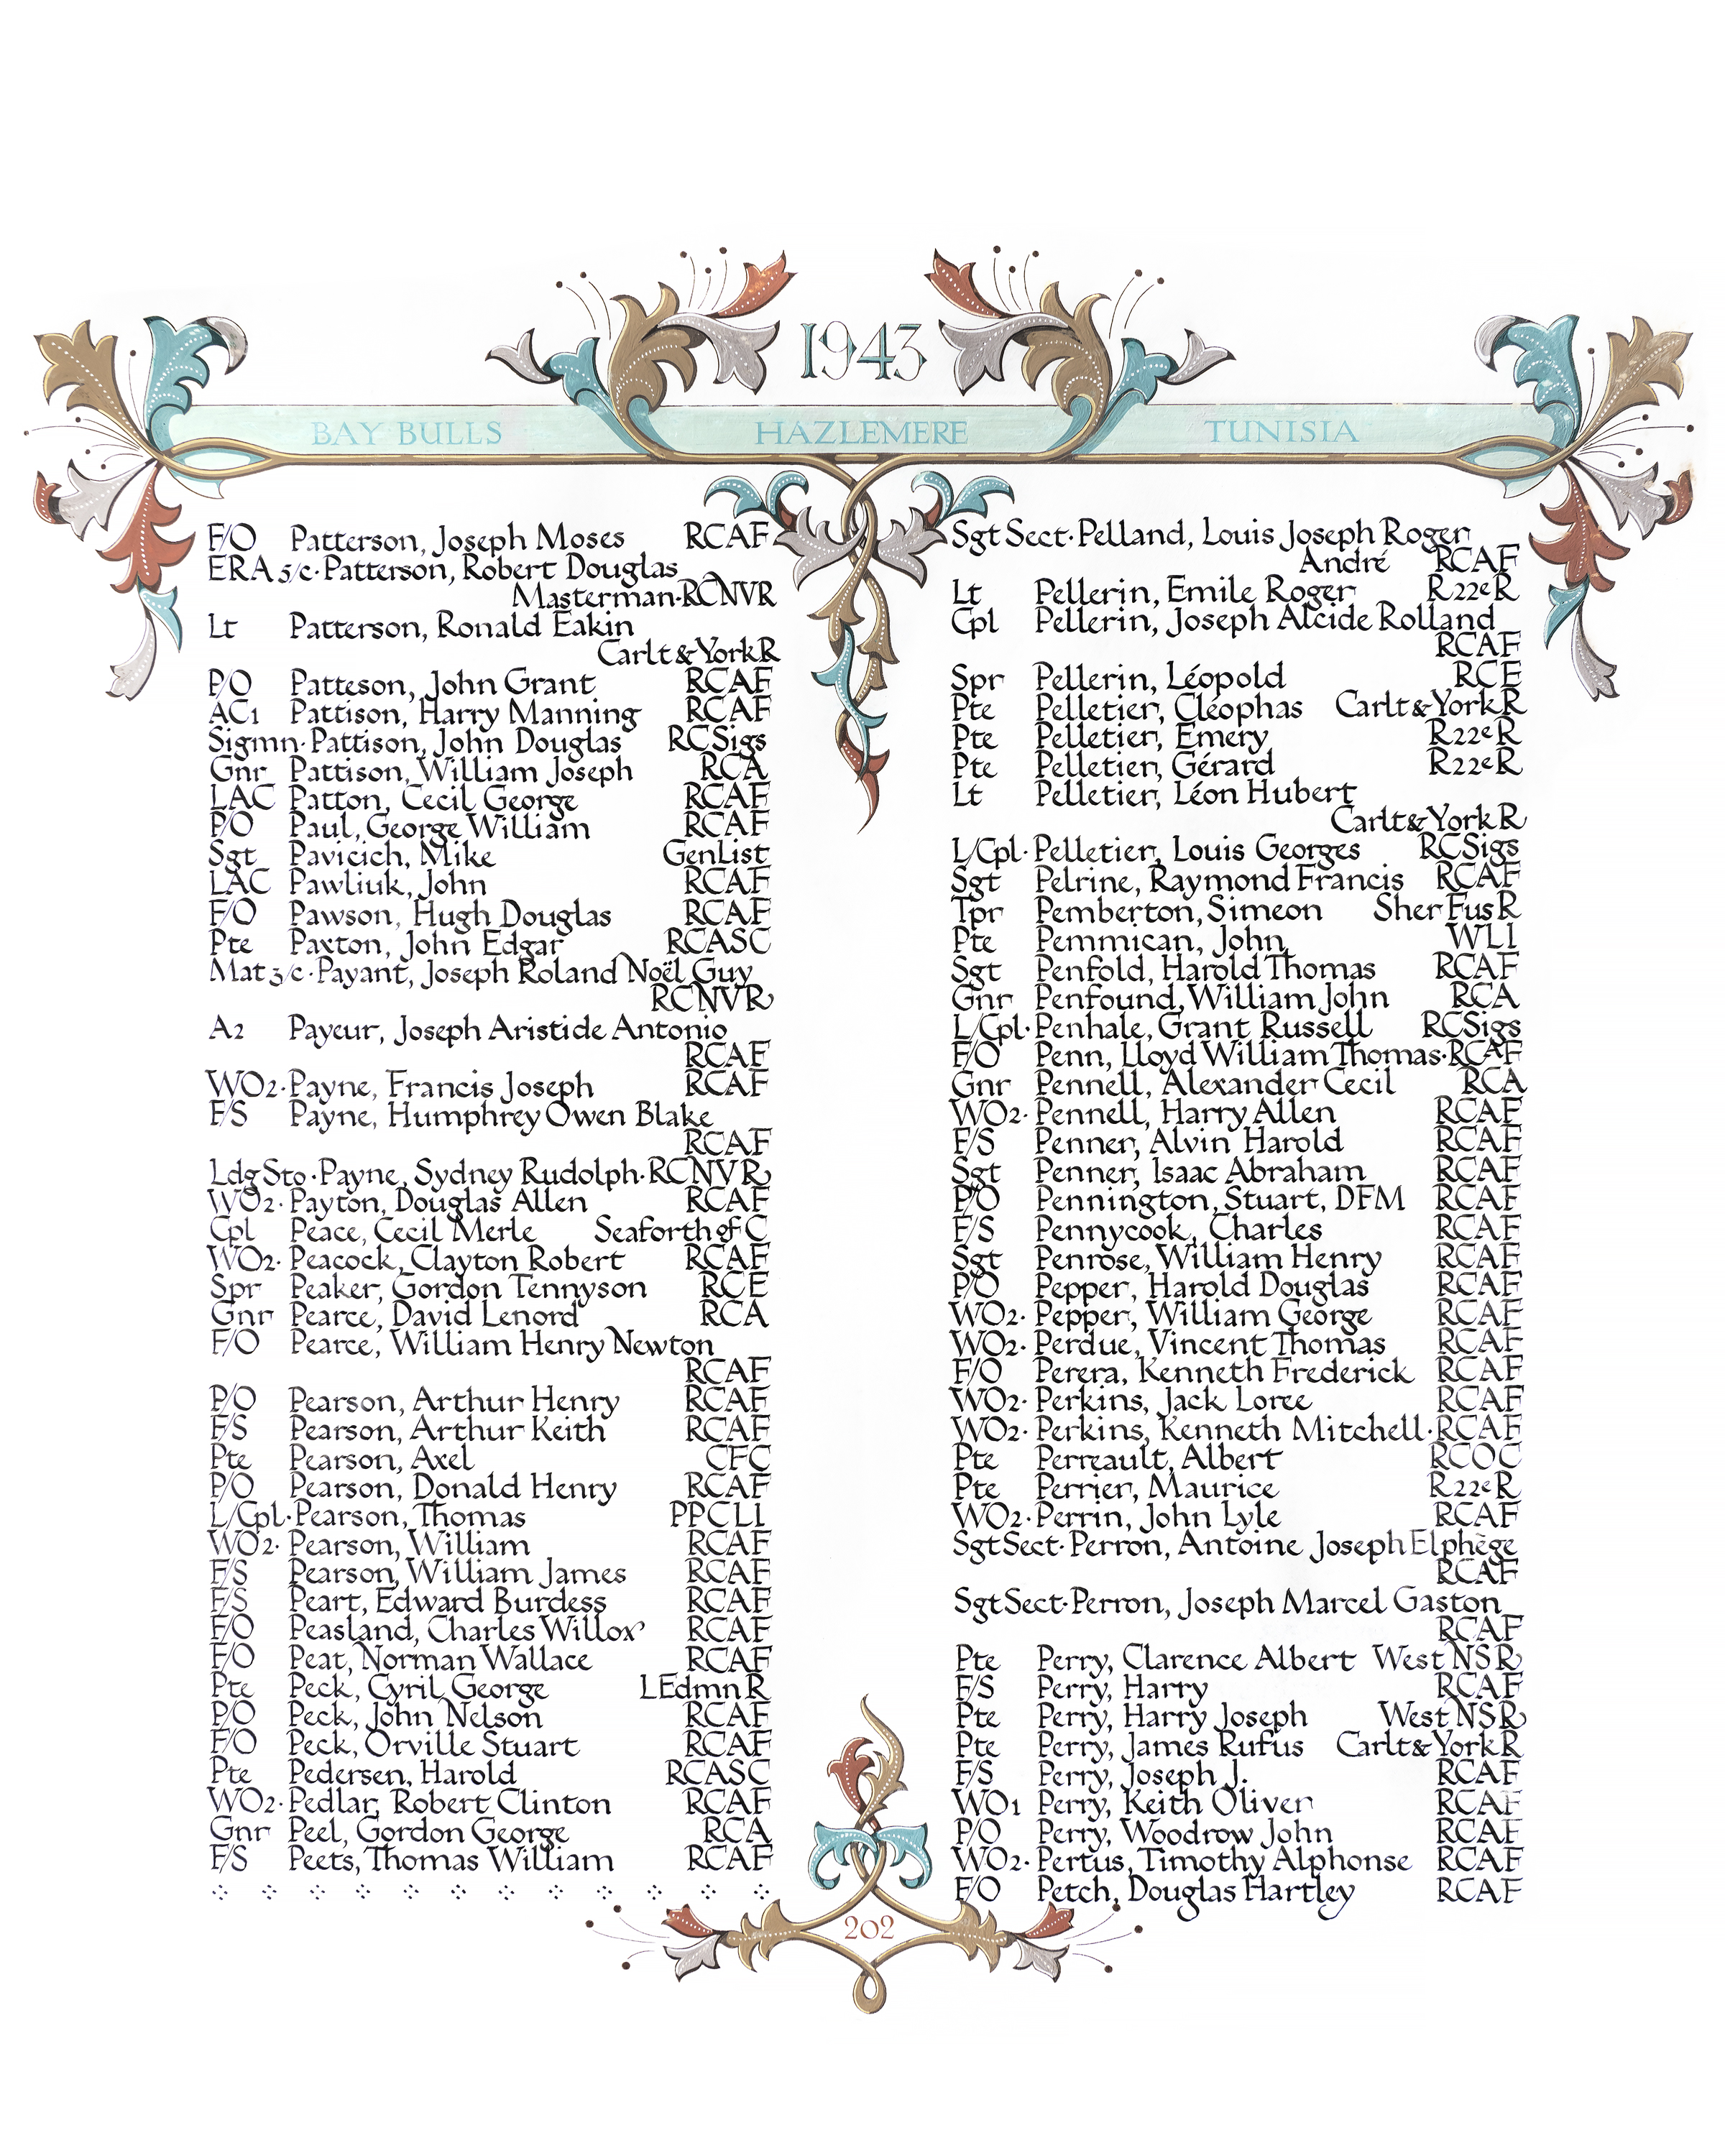 1943
BAY BULLS HAZLEMERE TUNISIA
F/O Patterson, Joseph Moses RCAF
ERA 5/c·Patterson, Robert Douglas
Masterman·RCNVR
Lt Patterson, Ronald Eakin
Carlt&YorkR
P/O Patteson, John Grant RCAF
AC1 Pattison, Harry Manning RCAF
Sigmn·Pattison, John Douglas RCSigs
Gnr Pattison, William Joseph RCA
LAC Patton, Cecil George RCAF
P/O Paul, George William RCAF
Sgt Pavicich, Mike GenList
LAC Pawliuk, John RCAF
F/O Pawson, Hugh Douglas RCAF
Pte Paxton, John Edgar RCASC
Mat 3/c·Payant, Joseph Roland Noël Guy
RCNVR
A2 Payeur, Joseph Aristide Antonio
RCAF
WO2·Payne, Francis Joseph RCAF
F/S Payne, Humphrey Owen Blake
RCAF
LdgSto·Payne, Sydney Rudolph·RCNVR
WO2·Payton, Douglas Allen RCAF
Cpl Peace, Cecil Merle Seaforth of C
WO2·Peacock, Clayton Robert RCAF
Spr Peaker, Gordon Tennyson RCE
Gnr Pearce, David Lenord RCA
F/O Pearce, William Henry Newton
RCAF
P/O Pearson, Arthur Henry RCAF
F/S Pearson, Arthur Keith RCAF
Pte Pearson, Axel CFC
P/O Pearson, Donald Henry RCAF
L/Cpl·Pearson, Thomas PPCLI
WO2·Pearson, William RCAF
F/S Pearson, William James RCAF
F/S Peart, Edward Burdess RCAF
F/O Peasland, Charles Willox RCAF
F/O Peat, Norman Wallace RCAF
Pte Peck, Cyril George LEdmnR
P/O Peck, John Nelson RCAF
F/O Peck, Orville Stuart RCAF
Pte Pedersen, Harold RCASC
WO2·Pedlar, Robert Clinton RCAF
Gnr Peel, Gordon George RCA
F/S Peets, Thomas William RCAF
Sgt Sect·Pelland, Louis Joseph Roger
André RCAF
Lt Pellerin, Emile Roger R22eR
Cpl Pellerin, Joseph Alcide Rolland
RCAF
Spr Pellerin, Léopold RCE
Pte Pelletier, Cléophas Carlt&YorkR
Pte Pelletier, Emery R22eR
Pte Pelletier, Gérard R22eR
Lt Pelletier, Léon Hubert
Carlt&YorkR
L/Cpl·Pelletier, Louis Georges RCSigs
Sgt Pelrine, Raymond Francis RCAF
Tpr Pemberton, Simeon SherFusR
Pte Pemmican, John WLI
Sgt Penfold, Harold Thomas RCAF
Gnr Penfound, William John RCA
L/Cpl·Penhale, Grant Russell RCSigs
F/O Penn, Lloyd William Thomas·RCAF
Gnr Pennell, Alexander Cecil RCA
WO2·Pennell, Harry Allen RCAF
F/S Penner, Alvin Harold RCAF
Sgt Penner, Isaac Abraham RCAF
P/O Pennington, Stuart, DFM RCAF
F/S Pennycook, Charles RCAF
Sgt Penrose, William Henry RCAF
P/O Pepper, Harold Douglas RCAF
WO2·Pepper, William George RCAF
WO2·Perdue, Vincent Thomas RCAF
F/O Perera, Kenneth Frederick RCAF
WO2·Perkins, Jack Loree RCAF
WO2·Perkins, Kenneth Mitchell·RCAF
Pte Perreault, Albert RCOC
Pte Perrier, Maurice R22eR
WO2·Perrin, John Lyle RCAF
SgtSect·Perron, Antoine Joseph Elphège
RCAF
SgtSect·Perron, Joseph Marcel Gaston
RCAF
Pte Perry, Clarence Albert West NSR
F/S Perry, Harry RCAF
Pte Perry, Harry Joseph West NSR
Pte Perry, James Rufus Carlt&YorkR
F/S Perry, Joseph J. RCAF
WO1 Perry, Keith Oliver RCAF
P/O Perry, Woodrow John RCAF
WO2·Pertus, Timothy Alphonse RCAF
F/O Petch, Douglas Hartley RCAF
202